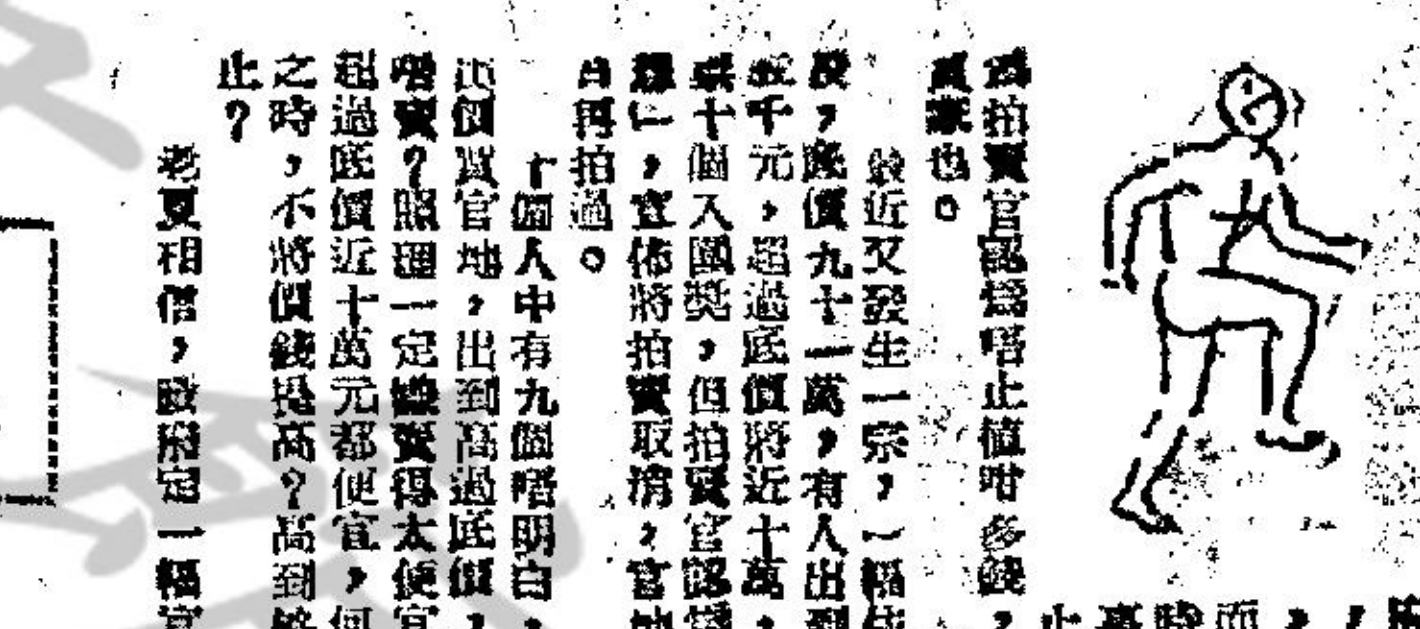 爲拍賣官認爲唔止值咁多錢，
買家也。
最近又發生一宗，一幅
，底價九十一萬，有人出到
千元，超過底價將近十萬，
十個入圍獎，但拍賣官認爲
」，宣佈將拍賣取消，官地
再拍過。
十個人中有九個唔明白，
價買官地，出到高過底價，
唔賣？照理一定嫌賣得太便宜
超過底價近十萬元都便宜，何
之時，不將價錢提高？高到
止？
老夏相信，政府定一幅官
止
時
而